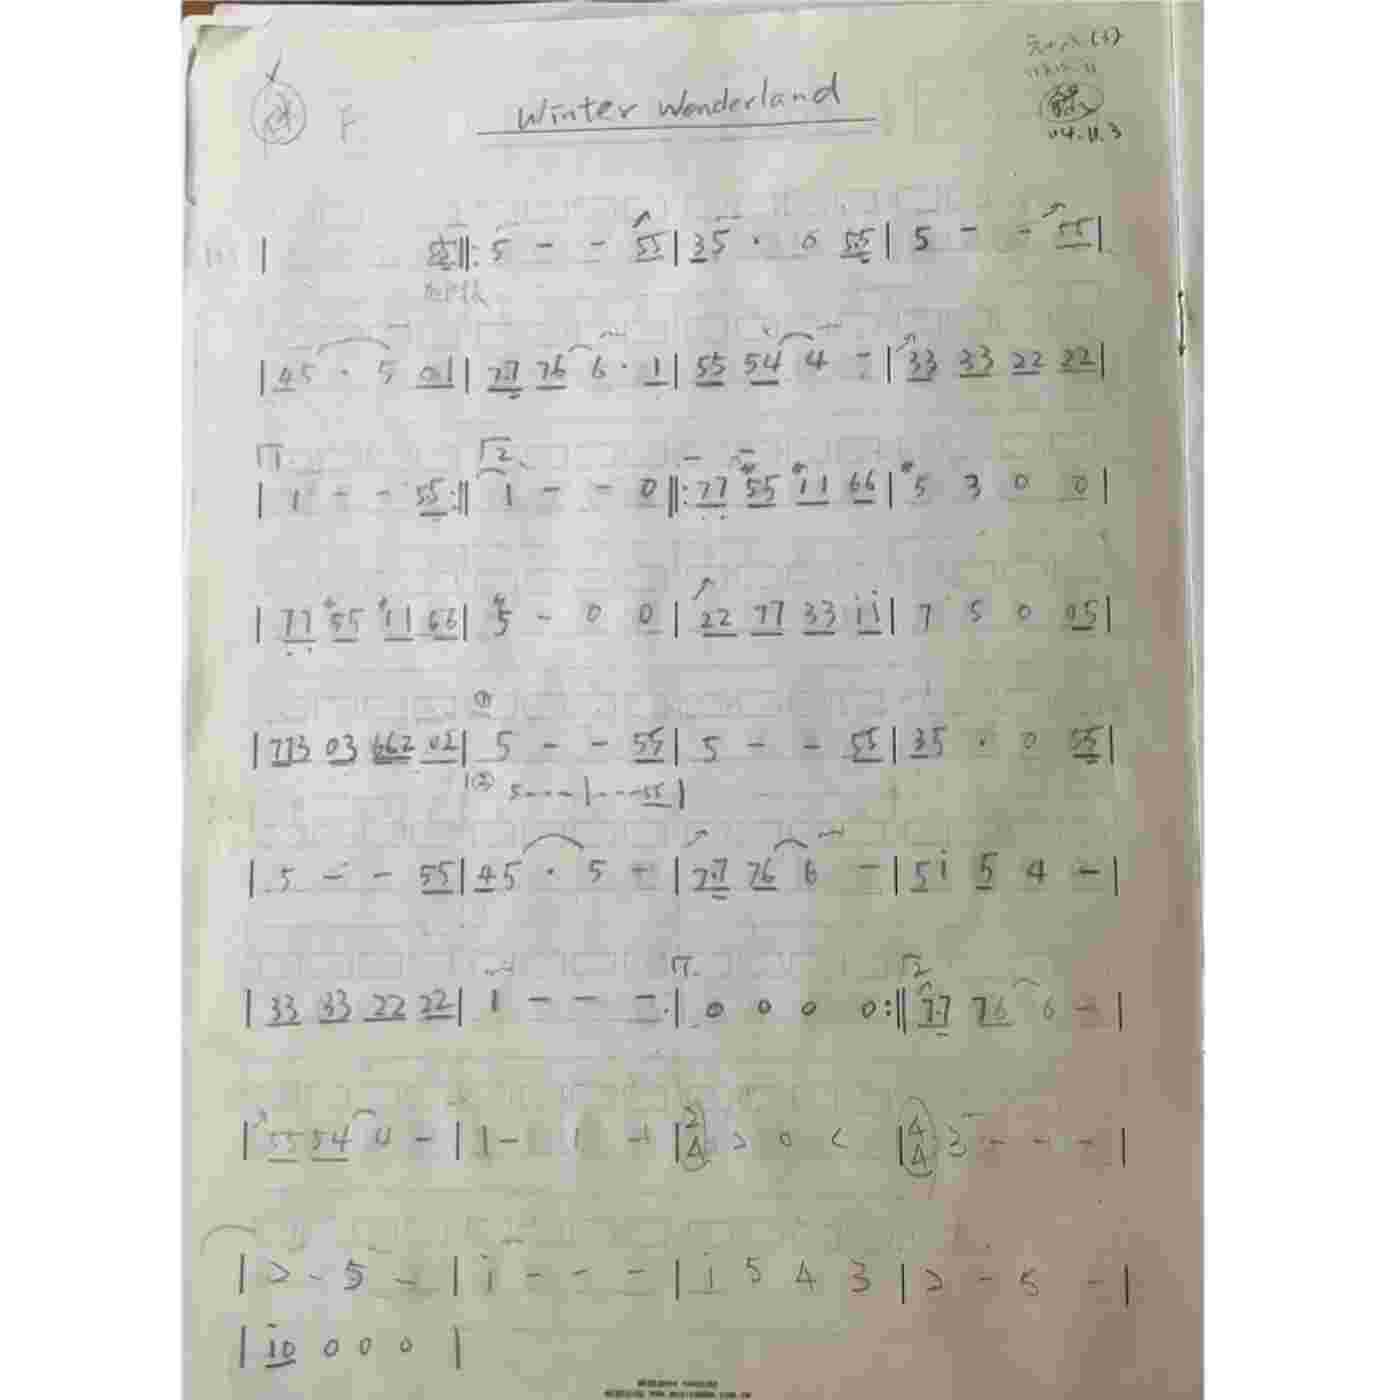 Winter Wonderland
F
04.11.3
| 55 ||: 5 - - 55 | 35 · 0 55 | 5 - - 55 |
| 45 · 5 01 | 7·7 76 6 · 1 | 55 54 4 - | 33 33 22 22 |
1. 2.
| 1 - - 55 :|| 1 - - 0 ||: 77 #55 #11 66 | #5 3 0 0 |
| 77 #55 #11 66 | #5 - 0 0 | 22 77 33 ii | 7 5 0 05 |
①
| 773 03 662 02 | 5 - - 55 | 5 - - 55 | 35 · 0 55 |
| ② 5 - - - | - - - 55 |
| 5 - - 55 | 45 · 5 - | 7·7 76 6 - | 5i 5 4 - |
1. 2
| 33 33 22 22 | 1 - - - | 0 0 0 0 :|| 7·7 76 6 - |
| 55 54 4 - | 1 - 1 - | 2/4 > 0 < | 4/4 3 - - - |
| > - 5 - | i - - - | i 5 4 3 | > - 5 - |
| i0 0 0 0 |